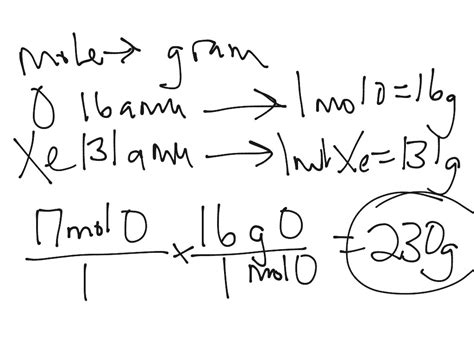 mole → gram
O 16 amu → 1 mol O = 16g
Xe 131 amu → 1 mol Xe = 131g
17 mol O / 1 × 16 g O / 1 mol O = 230g